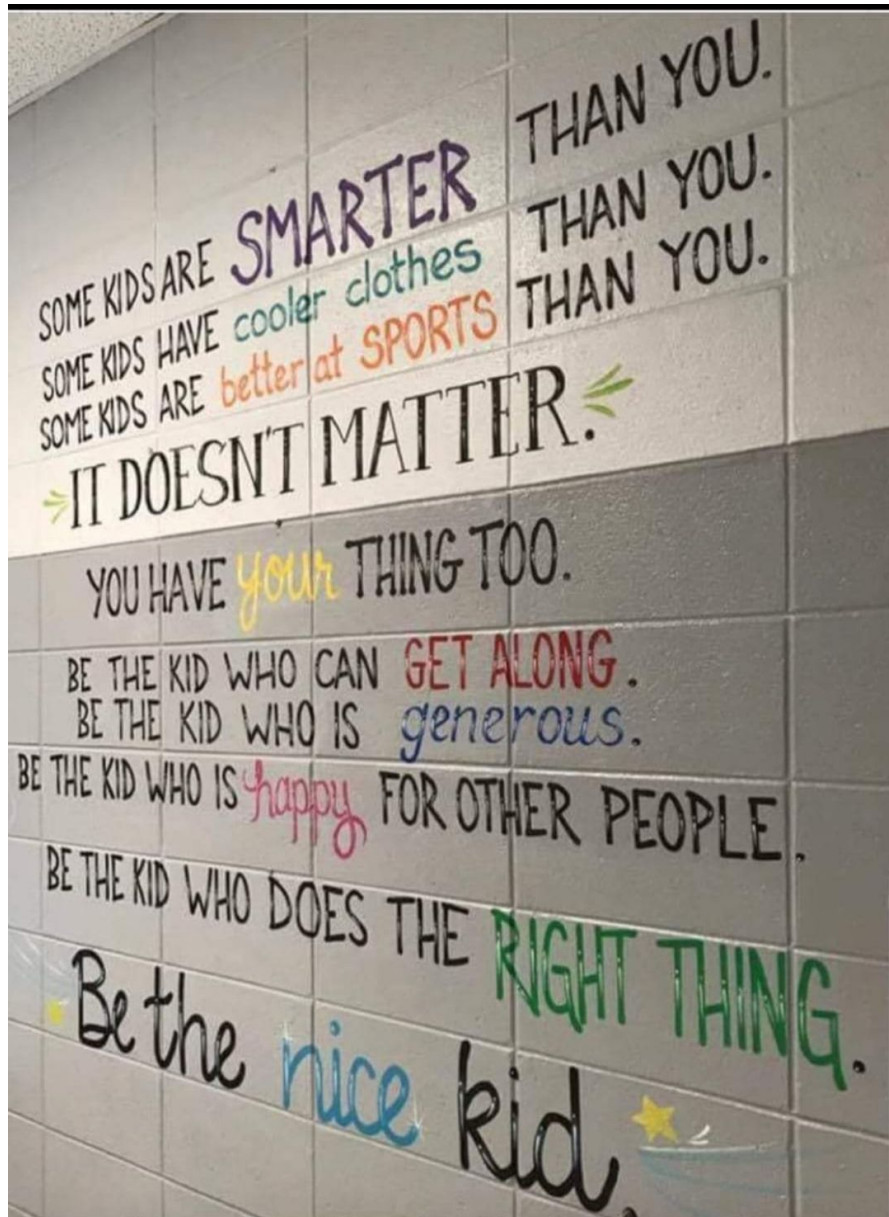 SOME KIDS ARE SMARTER THAN YOU.
SOME KIDS HAVE cooler clothes THAN YOU.
SOME KIDS ARE better at SPORTS THAN YOU.
IT DOESN'T MATTER.
YOU HAVE your THING TOO.
BE THE KID WHO CAN GET ALONG.
BE THE KID WHO IS generous.
BE THE KID WHO IS happy FOR OTHER PEOPLE.
BE THE KID WHO DOES THE RIGHT THING.
Be the nice kid.